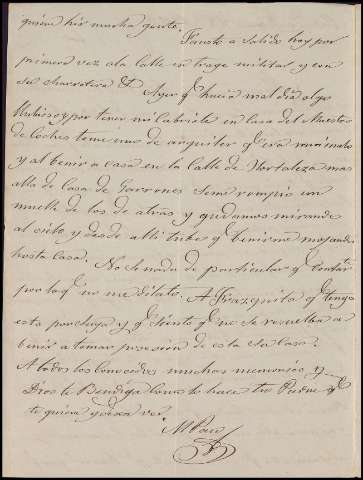 quiera hir mucha gente.
Fausto a salido hoy por
primera vez ala calle en trage militar y con
su charretera &. Ayer qe hacia mal dia algo
llubioso y por tener mi cabriolé en casa del Maestro
de Coches tome uno de alquiler qe era mui malo
y al benir a casa en la calle de Hortaleza mas
alla de casa de Garrones se me rompio un
muelle de los de atras y quedamos mirando
al cielo y desde alli tube qe benirme mojando
hasta Casa. No se nada de particular qe contarte
por lo qe no me dilato. A Frazquita qe tenga
esta por suya y qe siento qe no se resuelba a
benir a tomar posesion de esta su Casa.
A todos los conocidos muchas memorias y
Dios te Bendiga como lo hace tu Padre qe
te quiere y desea ver.
M Pau